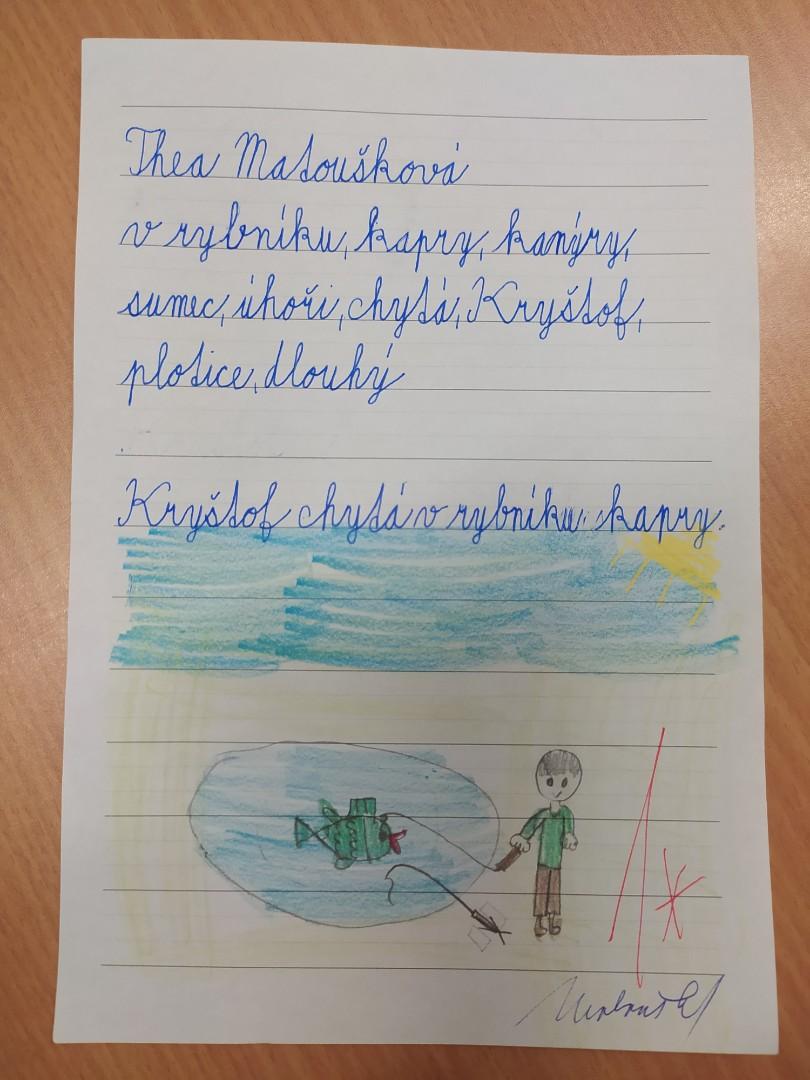 Thea Matoušková
v rybníku, kapry, kanýry,
sumec, úhoři, chytá, Kryštof,
plotice, dlouhý
Kryštof chytá v rybníku kapry.
1*